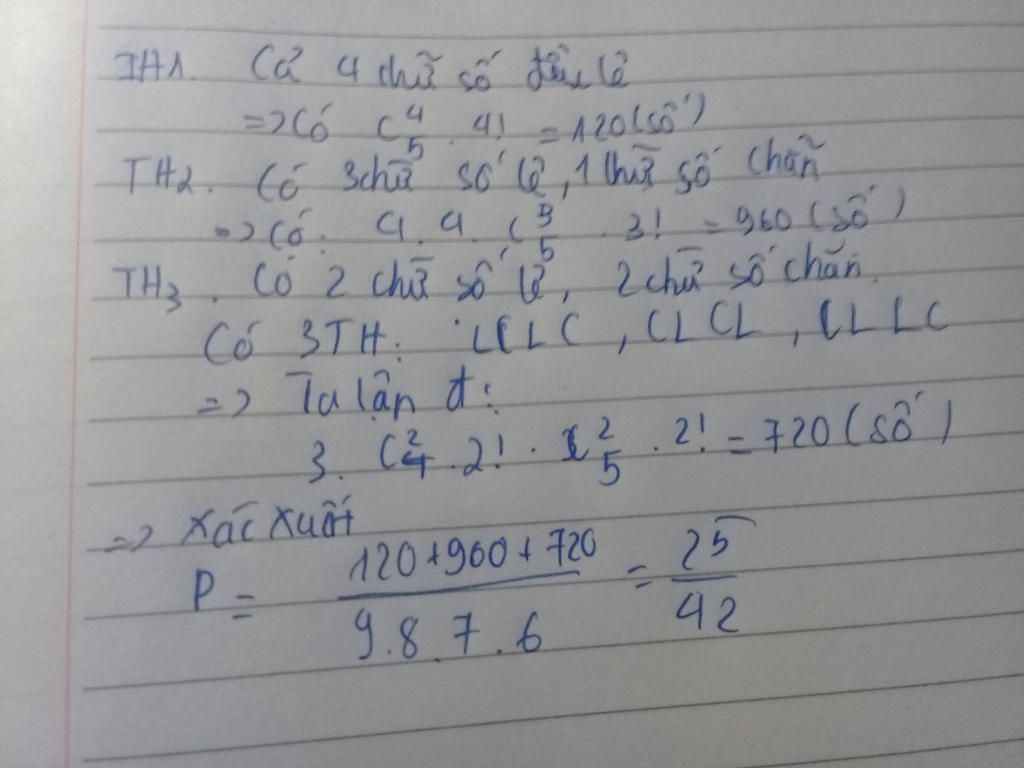 TH1. Cả 4 chữ số đều lẻ
=> Có C⁴₅ . 4! = 120 (số)
TH2. Có 3 chữ số lẻ, 1 chữ số chẵn
=> Có: 4. 4. C³₅ . 3! = 960 (số)
TH3. Có 2 chữ số lẻ, 2 chữ số chẵn.
Có 3TH: LCLC, CLCL, CLLC
=> Ta lận đ:
3. C²₄ . 2! . C²₅ . 2! = 720 (số)
=> Xác xuất
P = (120+960+720)/(9.8.7.6) = 25/42